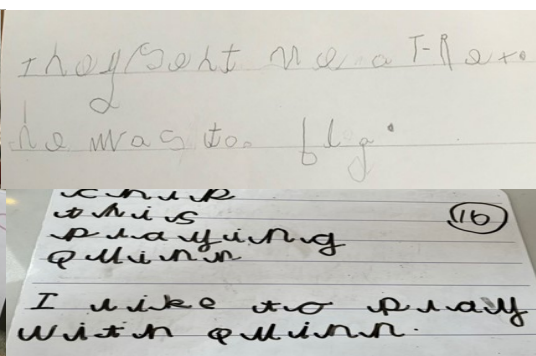 They Sent me a T-Rex.
he was to. big.
chip
this
16
playing
quinn
I like to play
with quinn.